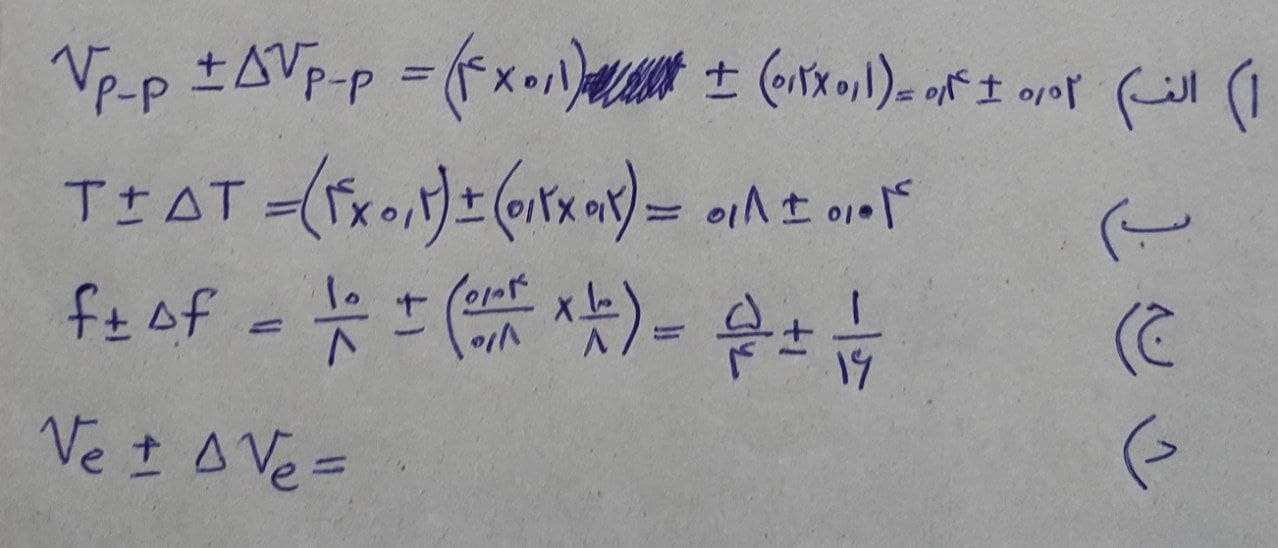 ۱) الف) Vp-p ± ΔVp-p = (۴ × ۰,۱) ± (۰,۲ × ۰,۱) = ۰,۴ ± ۰,۰۲
ب) T ± ΔT = (۴ × ۰,۲) ± (۰,۲ × ۰,۲) = ۰,۸ ± ۰,۰۴
ج) f ± Δf = ۱۰/۸ ± (۰,۰۴/۰,۸ × ۱۰/۸) = ۵/۴ ± ۱/۱۶
د) Ve ± ΔVe =